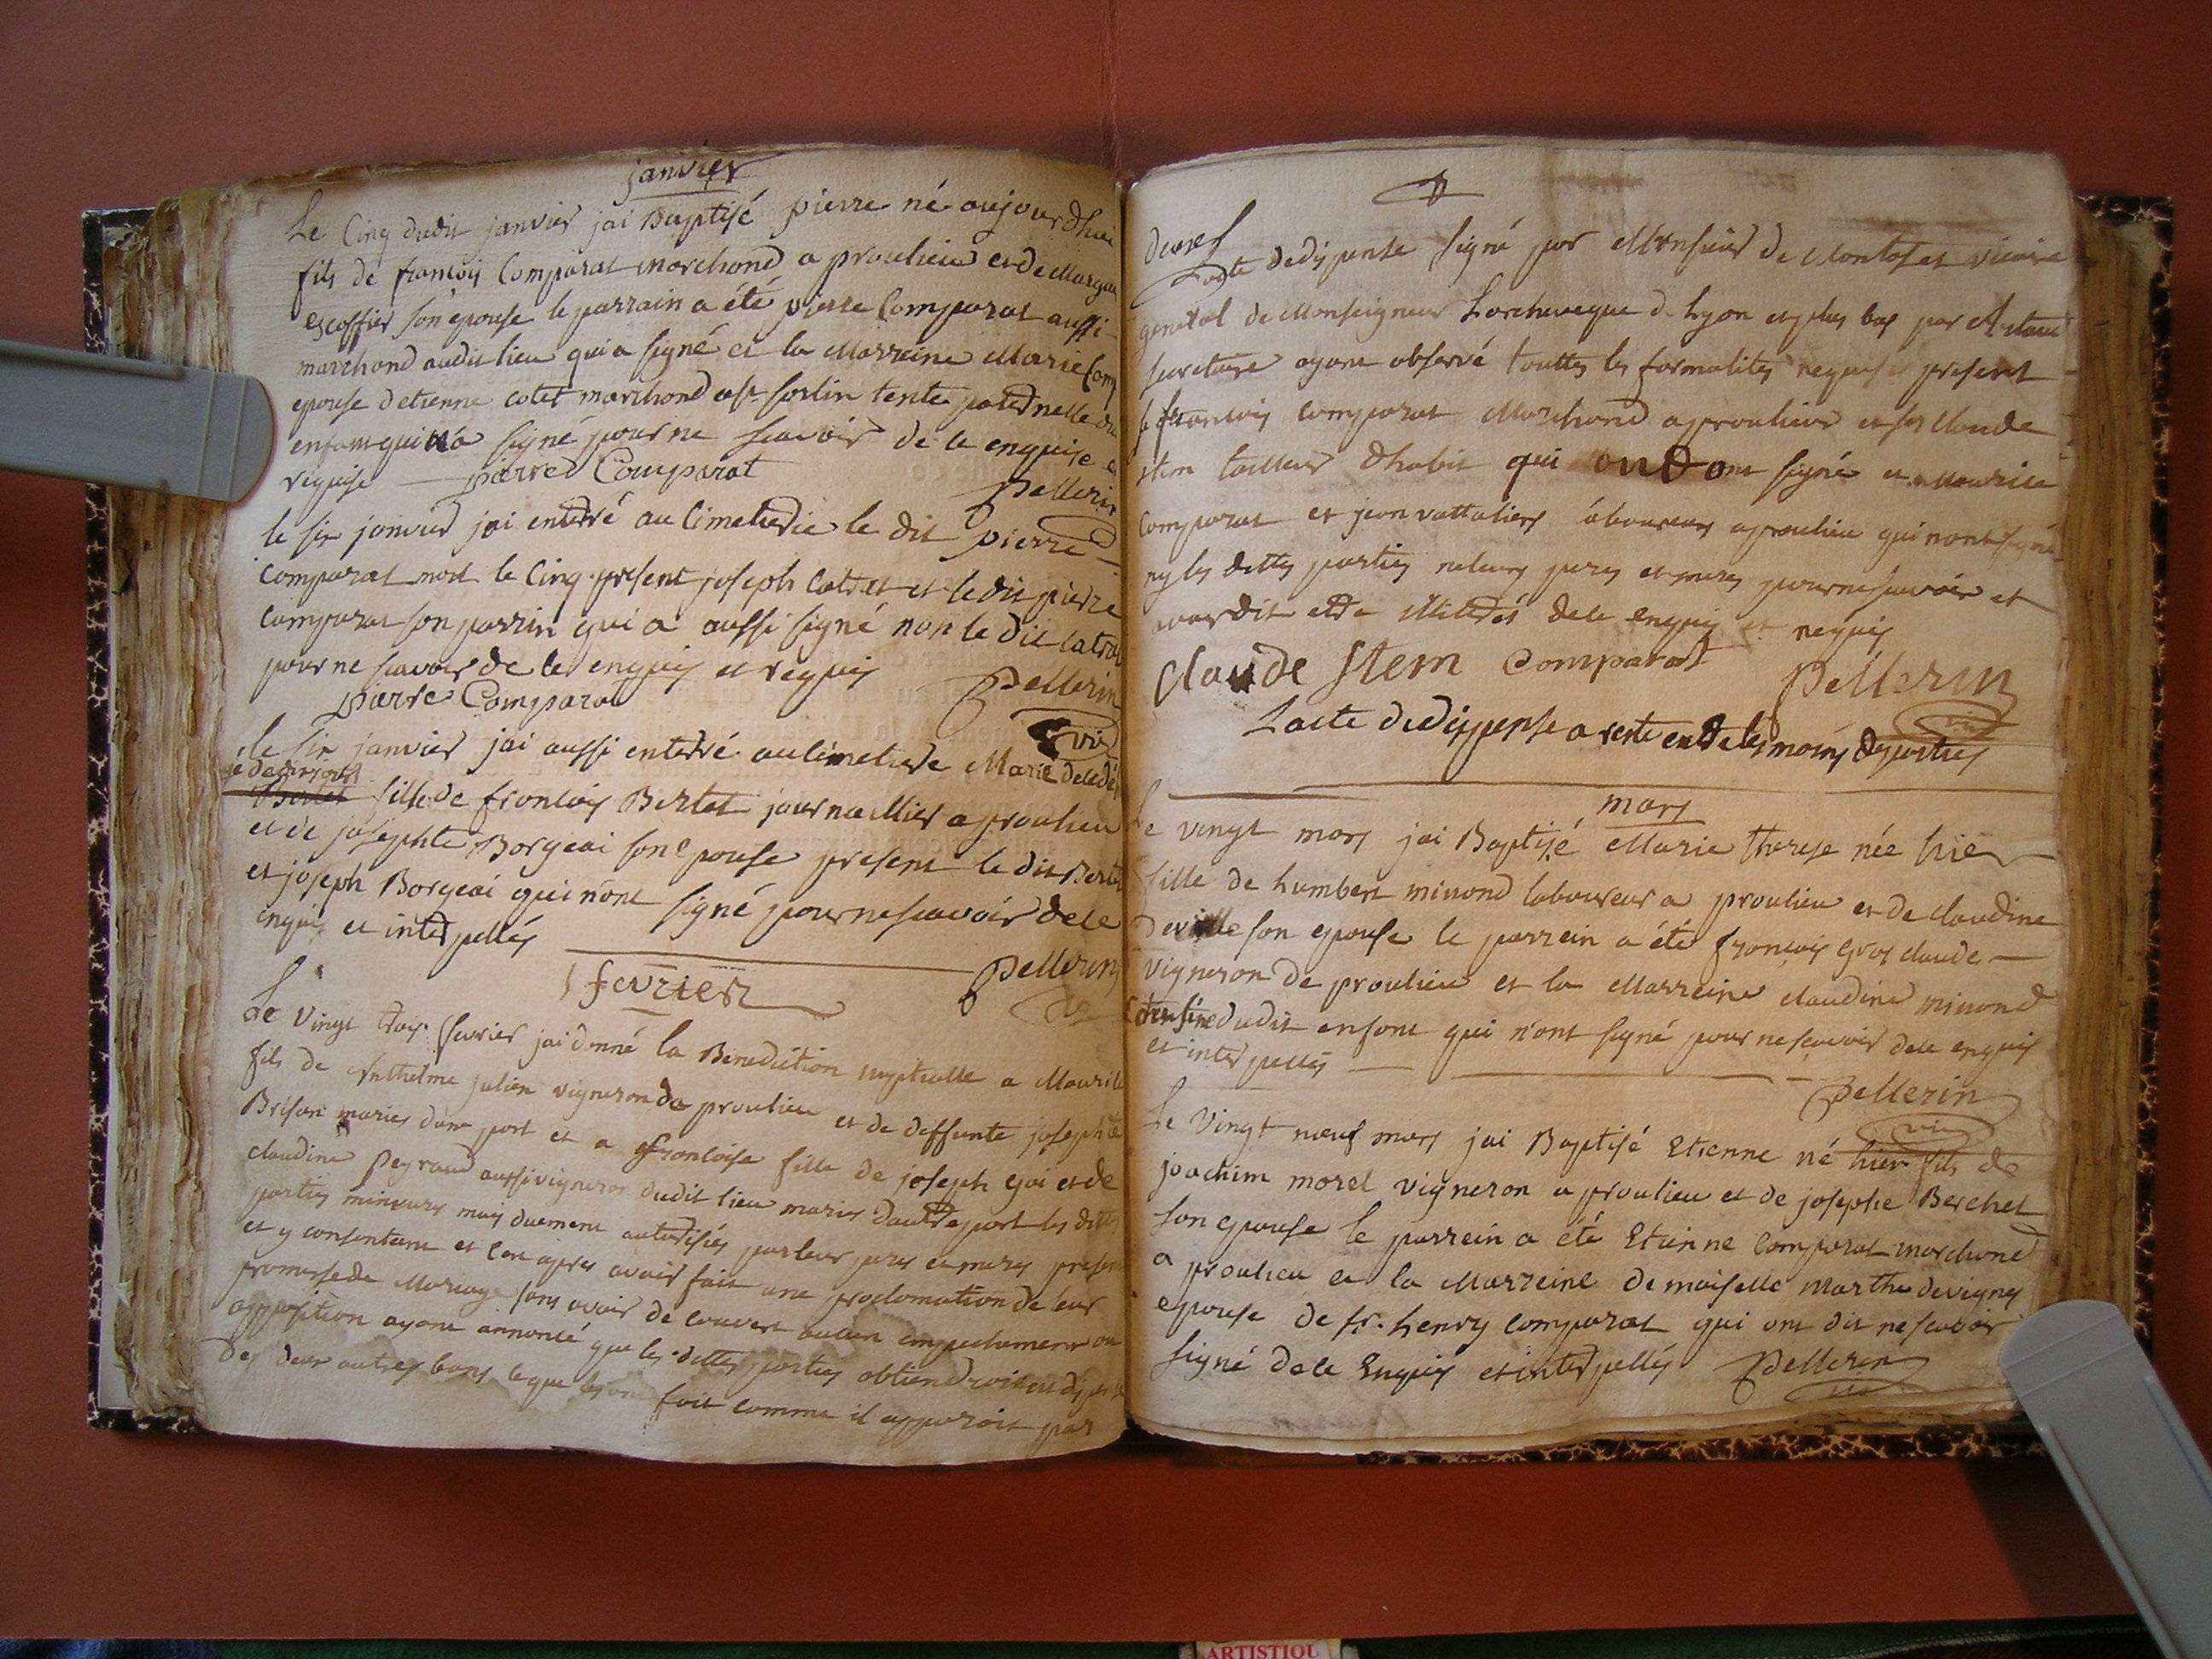 janvier
Le Cinq dudit janvier jai Baptisé pierre né aujourdhui
fils de francois Comparat marchand a proulieu et de Margue
escoffier son epouse le parrain a été pierre Comparat aussi
marchand audit lieu qui a signé et la Marreine Marie Com
epouse detienne cotet marchond a st sorlin tente paternelle du
enfant qui n'a signé pour ne scavoir de ce enquise e
requise pierre Comparat
Pellerin
le six janvier jai enterré au Cimetierre le dit pierre
Comparat mort le Cinq present joseph et le dit pierre
Comparat son parrin qui a aussi signé non le dit
pour ne scavoir de ce enquis et requis
pierre Comparat
Pellerin
vic
le six janvier jai aussi enterré au Cimetiere Marie decedé
Bertet fille de francois Bertet journaellier a proulieu
et de josephte Borgeai son epouse present le dit Bertet
et joseph Borgeai qui n'ont signé pour ne scavoir de ce
enquis et interpellés
Pellerin
fevrier
Le vingt trois fevrier jai donné la Benediction nuptialle a Maurice
fils de Anthelme julien vigneron de proulieu et de deffunte josephte
Brison mariés dune part et a francoise fille de joseph goi et de
claudine Peyraud aussi vigneron dudit lieu mariés dautre part les dittes
parties mineurs mais duement autorisés par leur peres et meres present
et y consentant et ce apres avoir fait une proclamation de leur
promesse de Mariage sans avoir decouvert aucun empechement ou
opposition ayant annoncé que les dittes parties obtiendroient dispense
des deux autres bans ce que les ont fait comme il apparoit par
lacte dedispense signé par Monsieur de vicaire
general de Monseigneur Larcheveque d Lyon et plus bas par
secretaire ayant observé touttes les formalites requises present
sr francois Comparat Marchand a proulieu et sr Claude
stem tailleur dhabit qui ont signé et Maurice
Comparat et jean vattalier laboureurs a proulieu qui nont signé
ny les dittes parties ni leurs peres et meres pour ne scavoir et
avoir dit etre illiterés de ce enquis et requis
Claude Stem Comparat Pellerin
vic
Lacte de dispense a resté entre les mains des parties
mars
Le vingt mars jai Baptisé Marie therese née hier
fille de humbert minond laboureur a proulieu et de claudine
Deville son epouse le parrein a été francois Gros claude
vigneron de proulieu et la Marreine claudine minond
dudit enfant qui n'ont signé pour ne scavoir de ce enquis
et interpellés
Pellerin
vic
Le vingt noeuf mars jai Baptisé Etienne né hier fils de
joachim morel vigneron a proulieu et de josephe Berchet
son epouse le parrein a été Etienne Comparat marchand
a proulieu et la Marreine demoiselle Marthe devigny
epouse de sr. henry Comparat qui ont dit ne scavoir
signé de ce Enquis et interpellés Pellerin
vic
ARTISTIQU